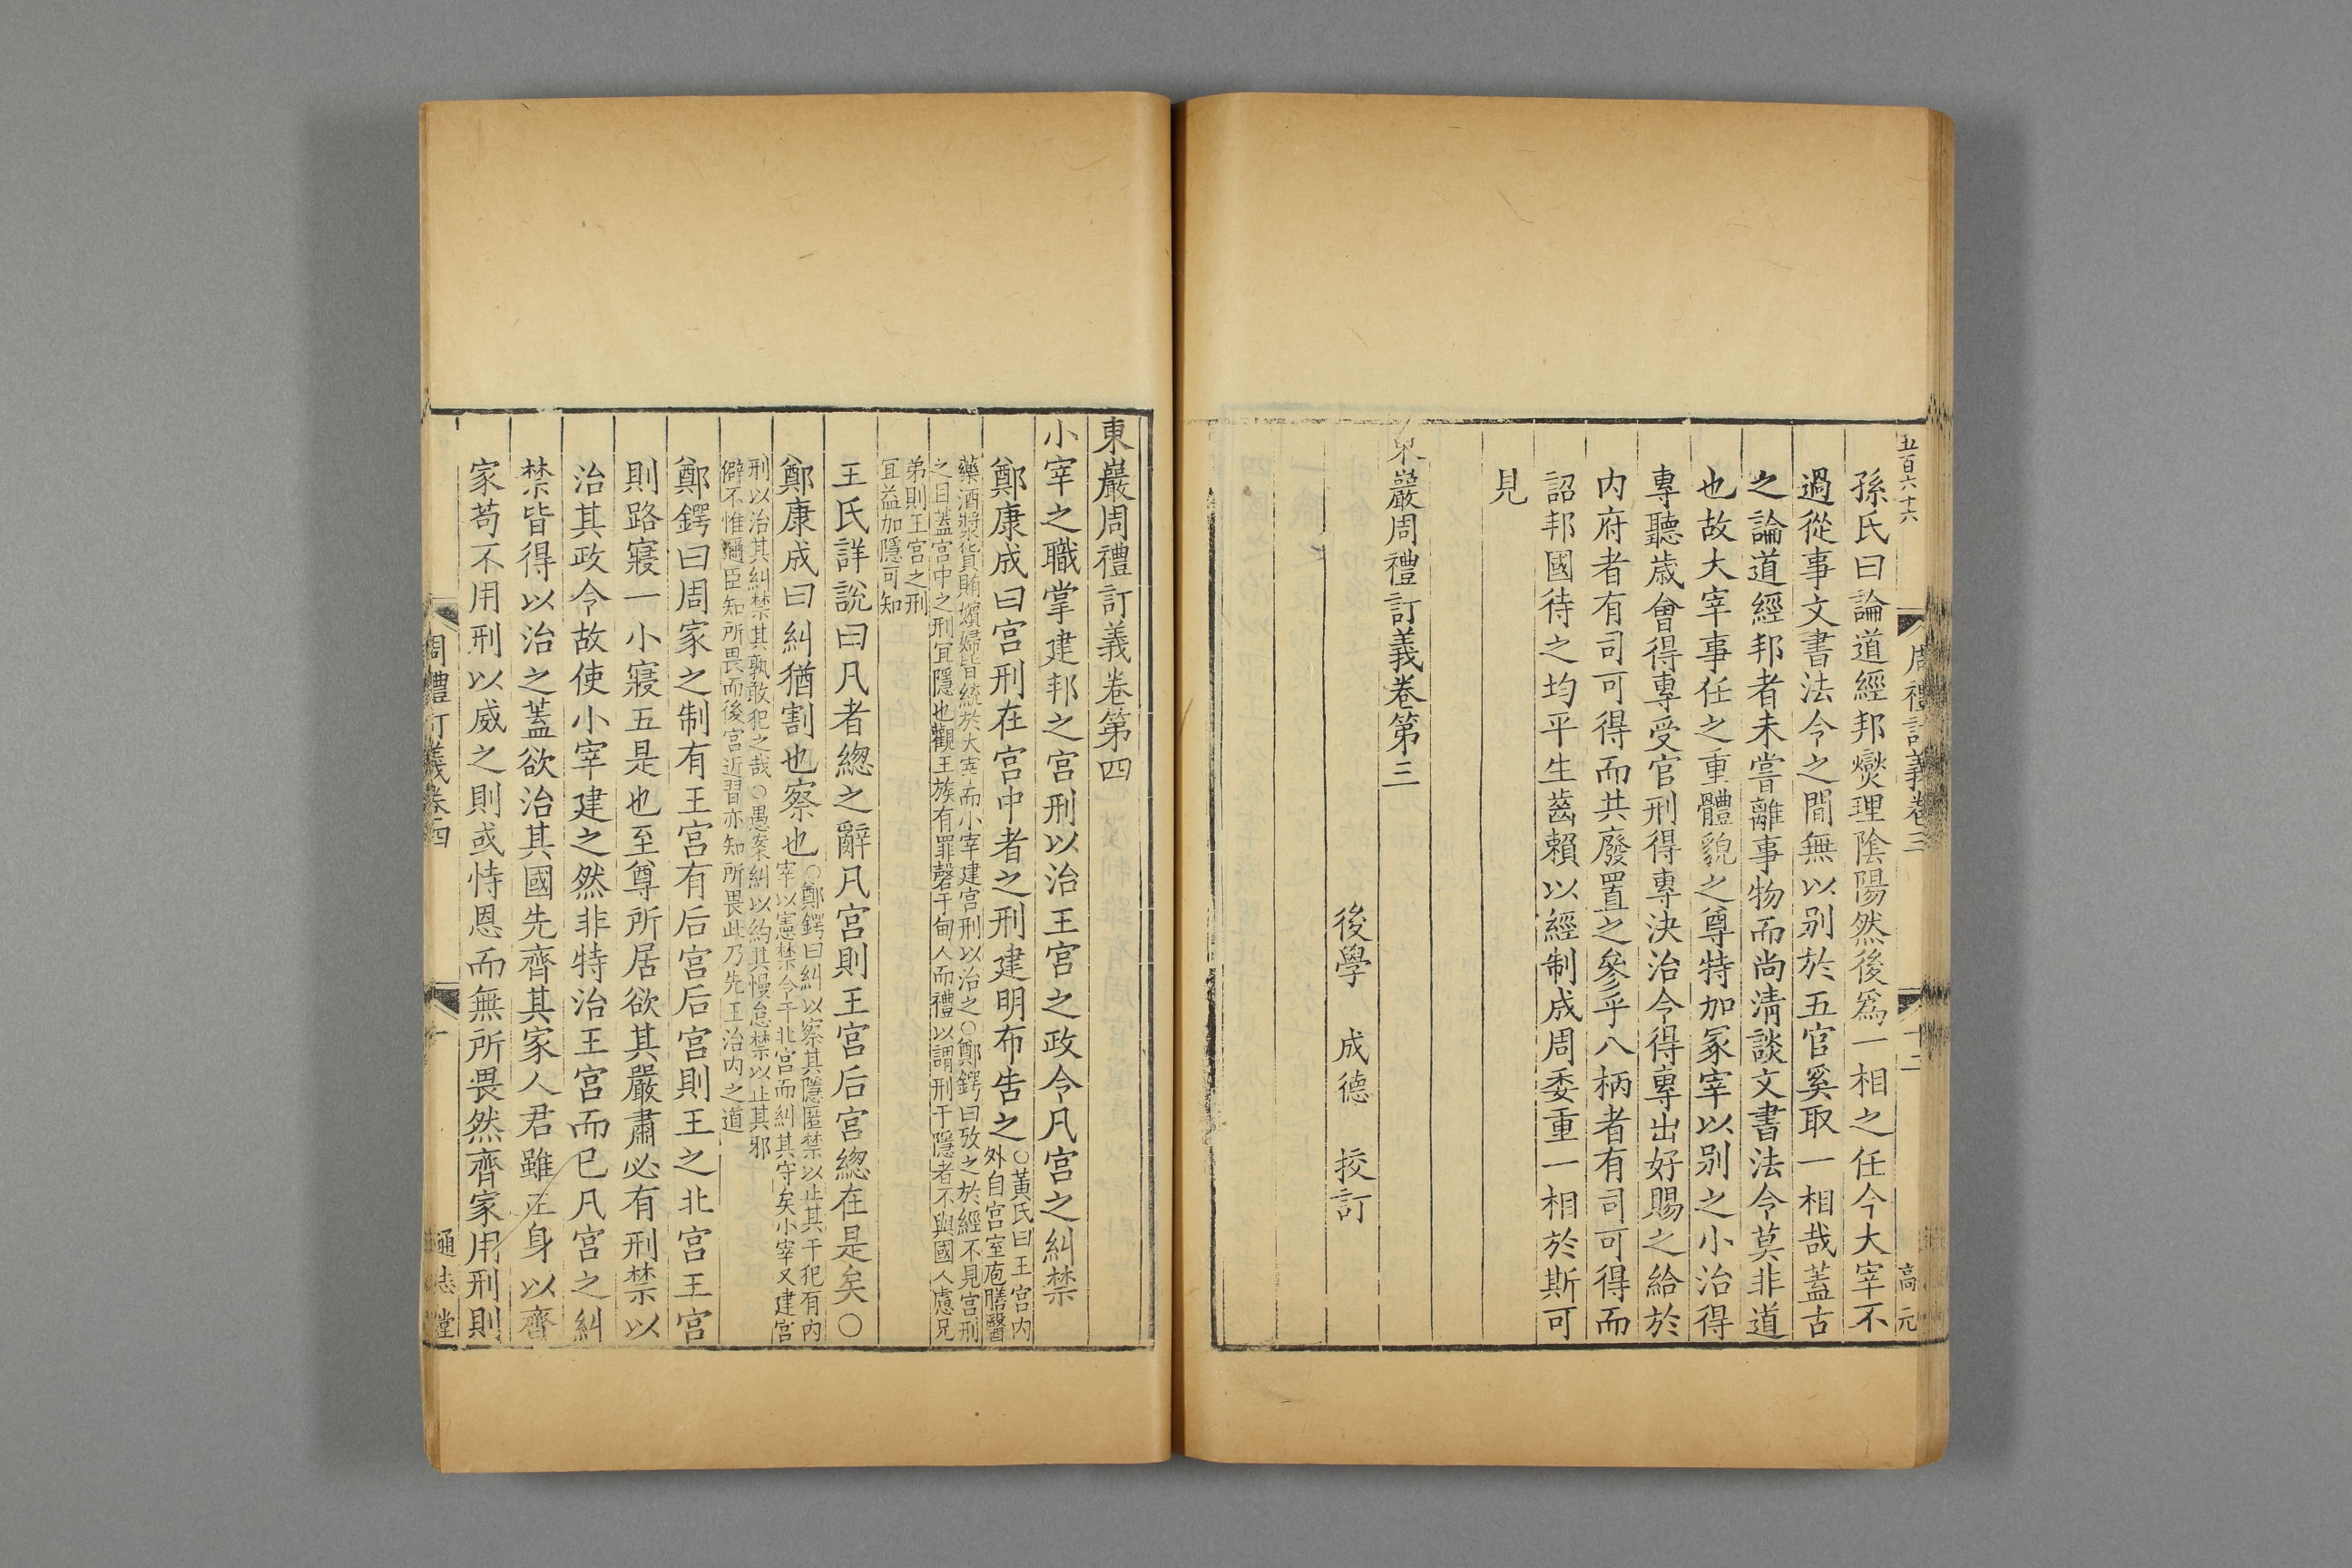 五百六十六
周禮訂義卷三
十二
高元
孫氏曰論道經邦爕理陰陽然後爲一相之任今大宰不
過從事文書法令之間無以别於五官奚取一相哉蓋古
之論道經邦者未嘗離事物而尚清談文書法令莫非道
也故大宰事任之重體貌之尊特加冢宰以别之小治得
專聽歲會得專受官刑得專決治令得專出好賜之給於
内府者有司可得而共廢置之參乎八柄者有司可得而
詔邦國待之均平生齒賴以經制成周委重一相於斯可
見
東巖周禮訂義卷第三
後學 成德 挍訂
東巖周禮訂義卷第四
小宰之職掌建邦之宫刑以治王宫之政令凡宫之糾禁
鄭康成曰宫刑在宫中者之刑建明布告之○黃氏曰王宫内
外自宫室庖膳醫
藥酒漿貨賄嬪婦皆統於大宰而小宰建宫刑以治之○鄭鍔曰攷之於經不見宫刑
之目蓋宫中之刑冝隱也觀王族有罪磬于甸人而禮以謂刑于隱者不與國人慮兄
弟則王宫之刑
冝益加隱可知
王氏詳說曰凡者緫之辭凡宫則王宫后宫緫在是矣○
鄭康成曰糾猶割也察也○鄭鍔曰糾以察其隱匿禁以止其干犯有内
宰以憲禁令于北宫而糾其守矣小宰又建宫
刑以治其糾禁其孰敢犯之哉○愚案糾以約其慢怠禁以止其邪
僻不惟邇臣知所畏而後宫近習亦知所畏此乃先王治内之道
鄭鍔曰周家之制有王宫有后宫后宫則王之北宫王宫
則路寢一小寢五是也至尊所居欲其嚴肅必有刑禁以
治其政令故使小宰建之然非特治王宫而已凡宫之糾
禁皆得以治之蓋欲治其國先齊其家人君雖正身以齊
家苟不用刑以威之則或恃恩而無所畏然齊家用刑則
周禮訂義卷四
一
通志堂